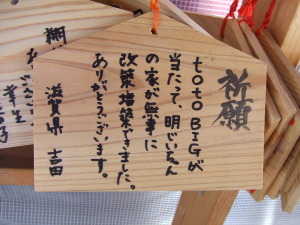 祈願
toto BIGが
当たって、明じいちゃん
の家が無事に
改築増築できました。
ありがとうございます。
滋賀県 吉田